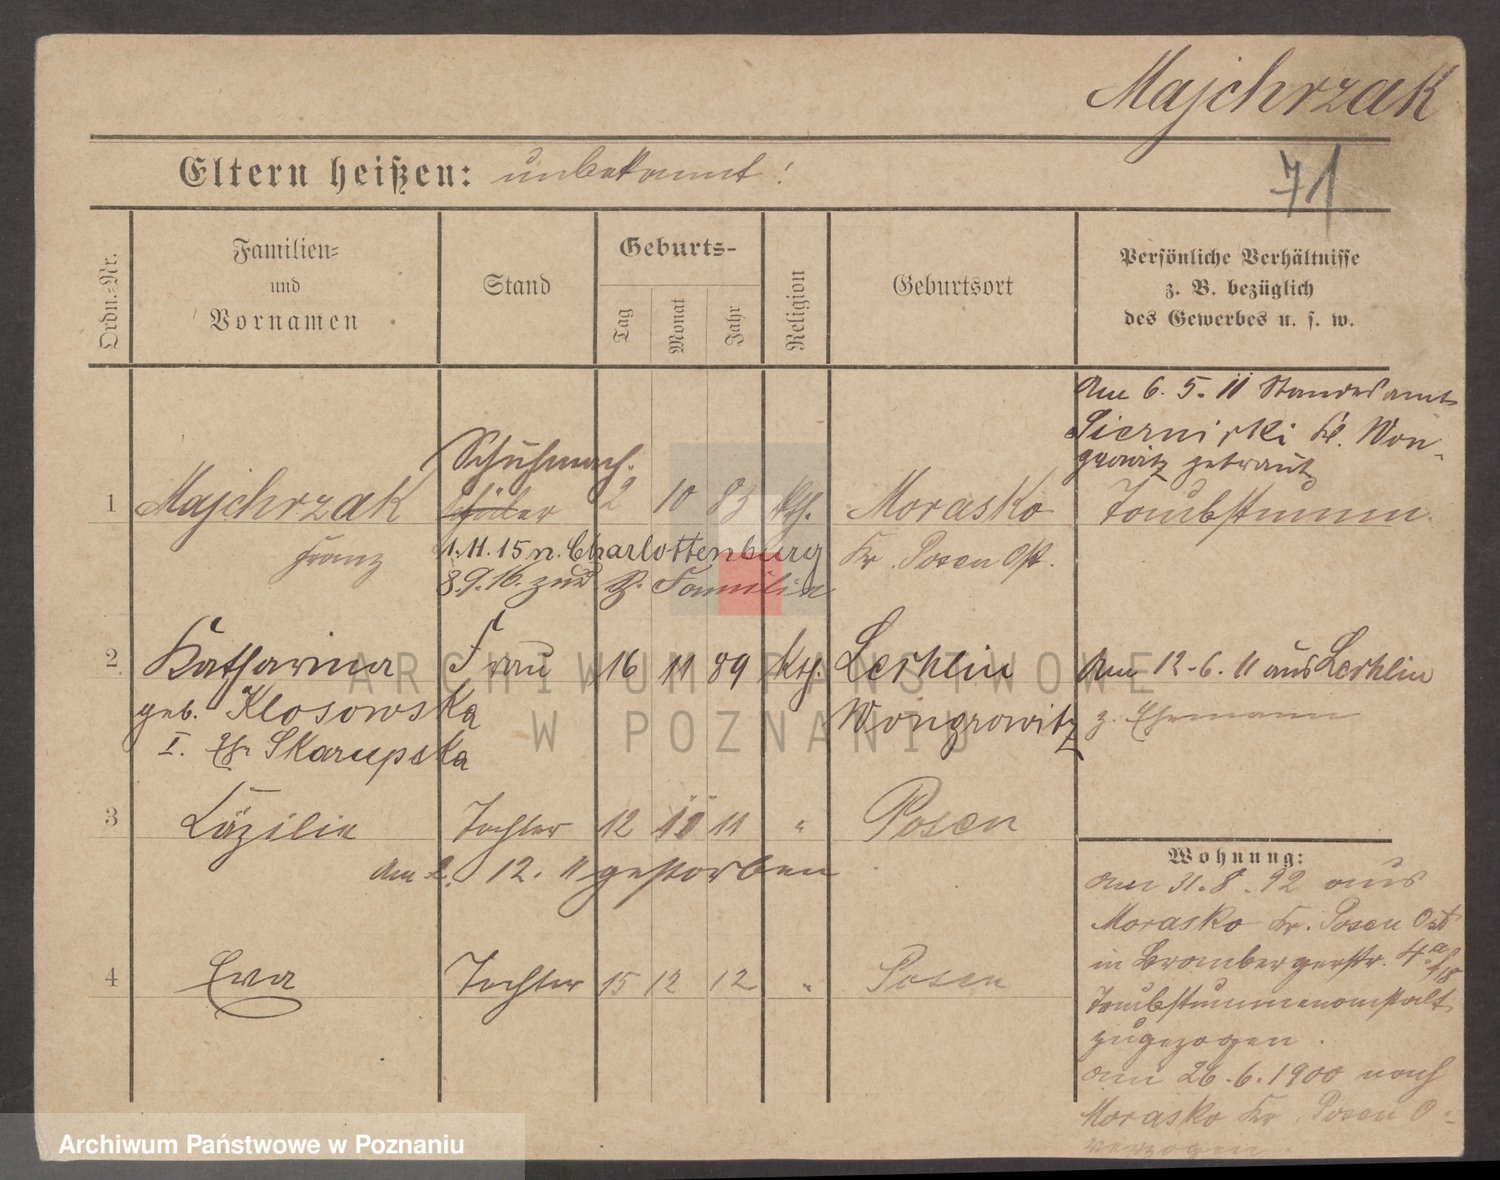 Majchrzak
71
Eltern heißen: unbekannt!
Ordn.-Nr.
Familien-
und
Vornamen
Stand
Geburts-
Tag
Monat
Jahr
Religion
Geburtsort
Persönliche Verhältnisse
z. B. bezüglich
des Gewerbes u. s. w.
am 6. 5. 11 Standesamt
Siernicki Kr. Won-
growitz getraut
Schuhmach.
1 Majchrzak Schüler 2 10 83 kth. Morasko Taubstumm.
Franz 1. 11. 15 n. Charlottenburg Kr. Posen Ost.
8. 9. 16. zur Familie
2 Katharina Frau 16 11 89 kth. Lechlin am 12-6. 11 aus Lechlin
geb. Klosowska Wongrowitz z. Ehemann
I. Eh. Skarupska
3 Cäzilie Tochter 12 10 11 " Posen
am 2. 12. 11 gestorben
4 Eva Tochter 15 12 12 " Posen
Wohnung:
am 31. 8. 92 aus
Morasko Kr. Posen Ost
in Brombergerstr. 4a
Taubstummenanstalt
zugezogen.
am 26. 6. 1900 nach
Morasko Kr. Posen O.
verzogen.
ARCHIWUM PAŃSTWOWE
W POZNANIU
Archiwum Państwowe w Poznaniu